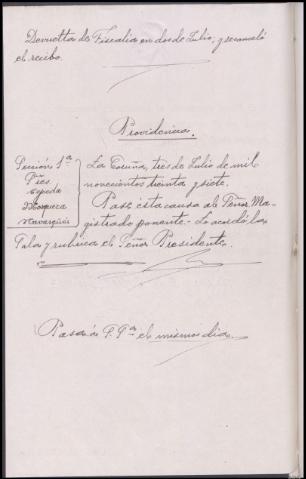 Devuelta de Fiscalia en dos de Julio, y se canceló
el recibo.
Providencia.
Sección 1ª
Sres
Cepeda
Mosquera
Navarquies
La Coruña, tres de Julio de mil
novecientos treinta y siete.
Pase esta causa al Señor Ma-
gistrado ponente. Lo acordó la
Sala y rubrica el Señor Presidente.
Pasa á S. Sª el mismo dia.